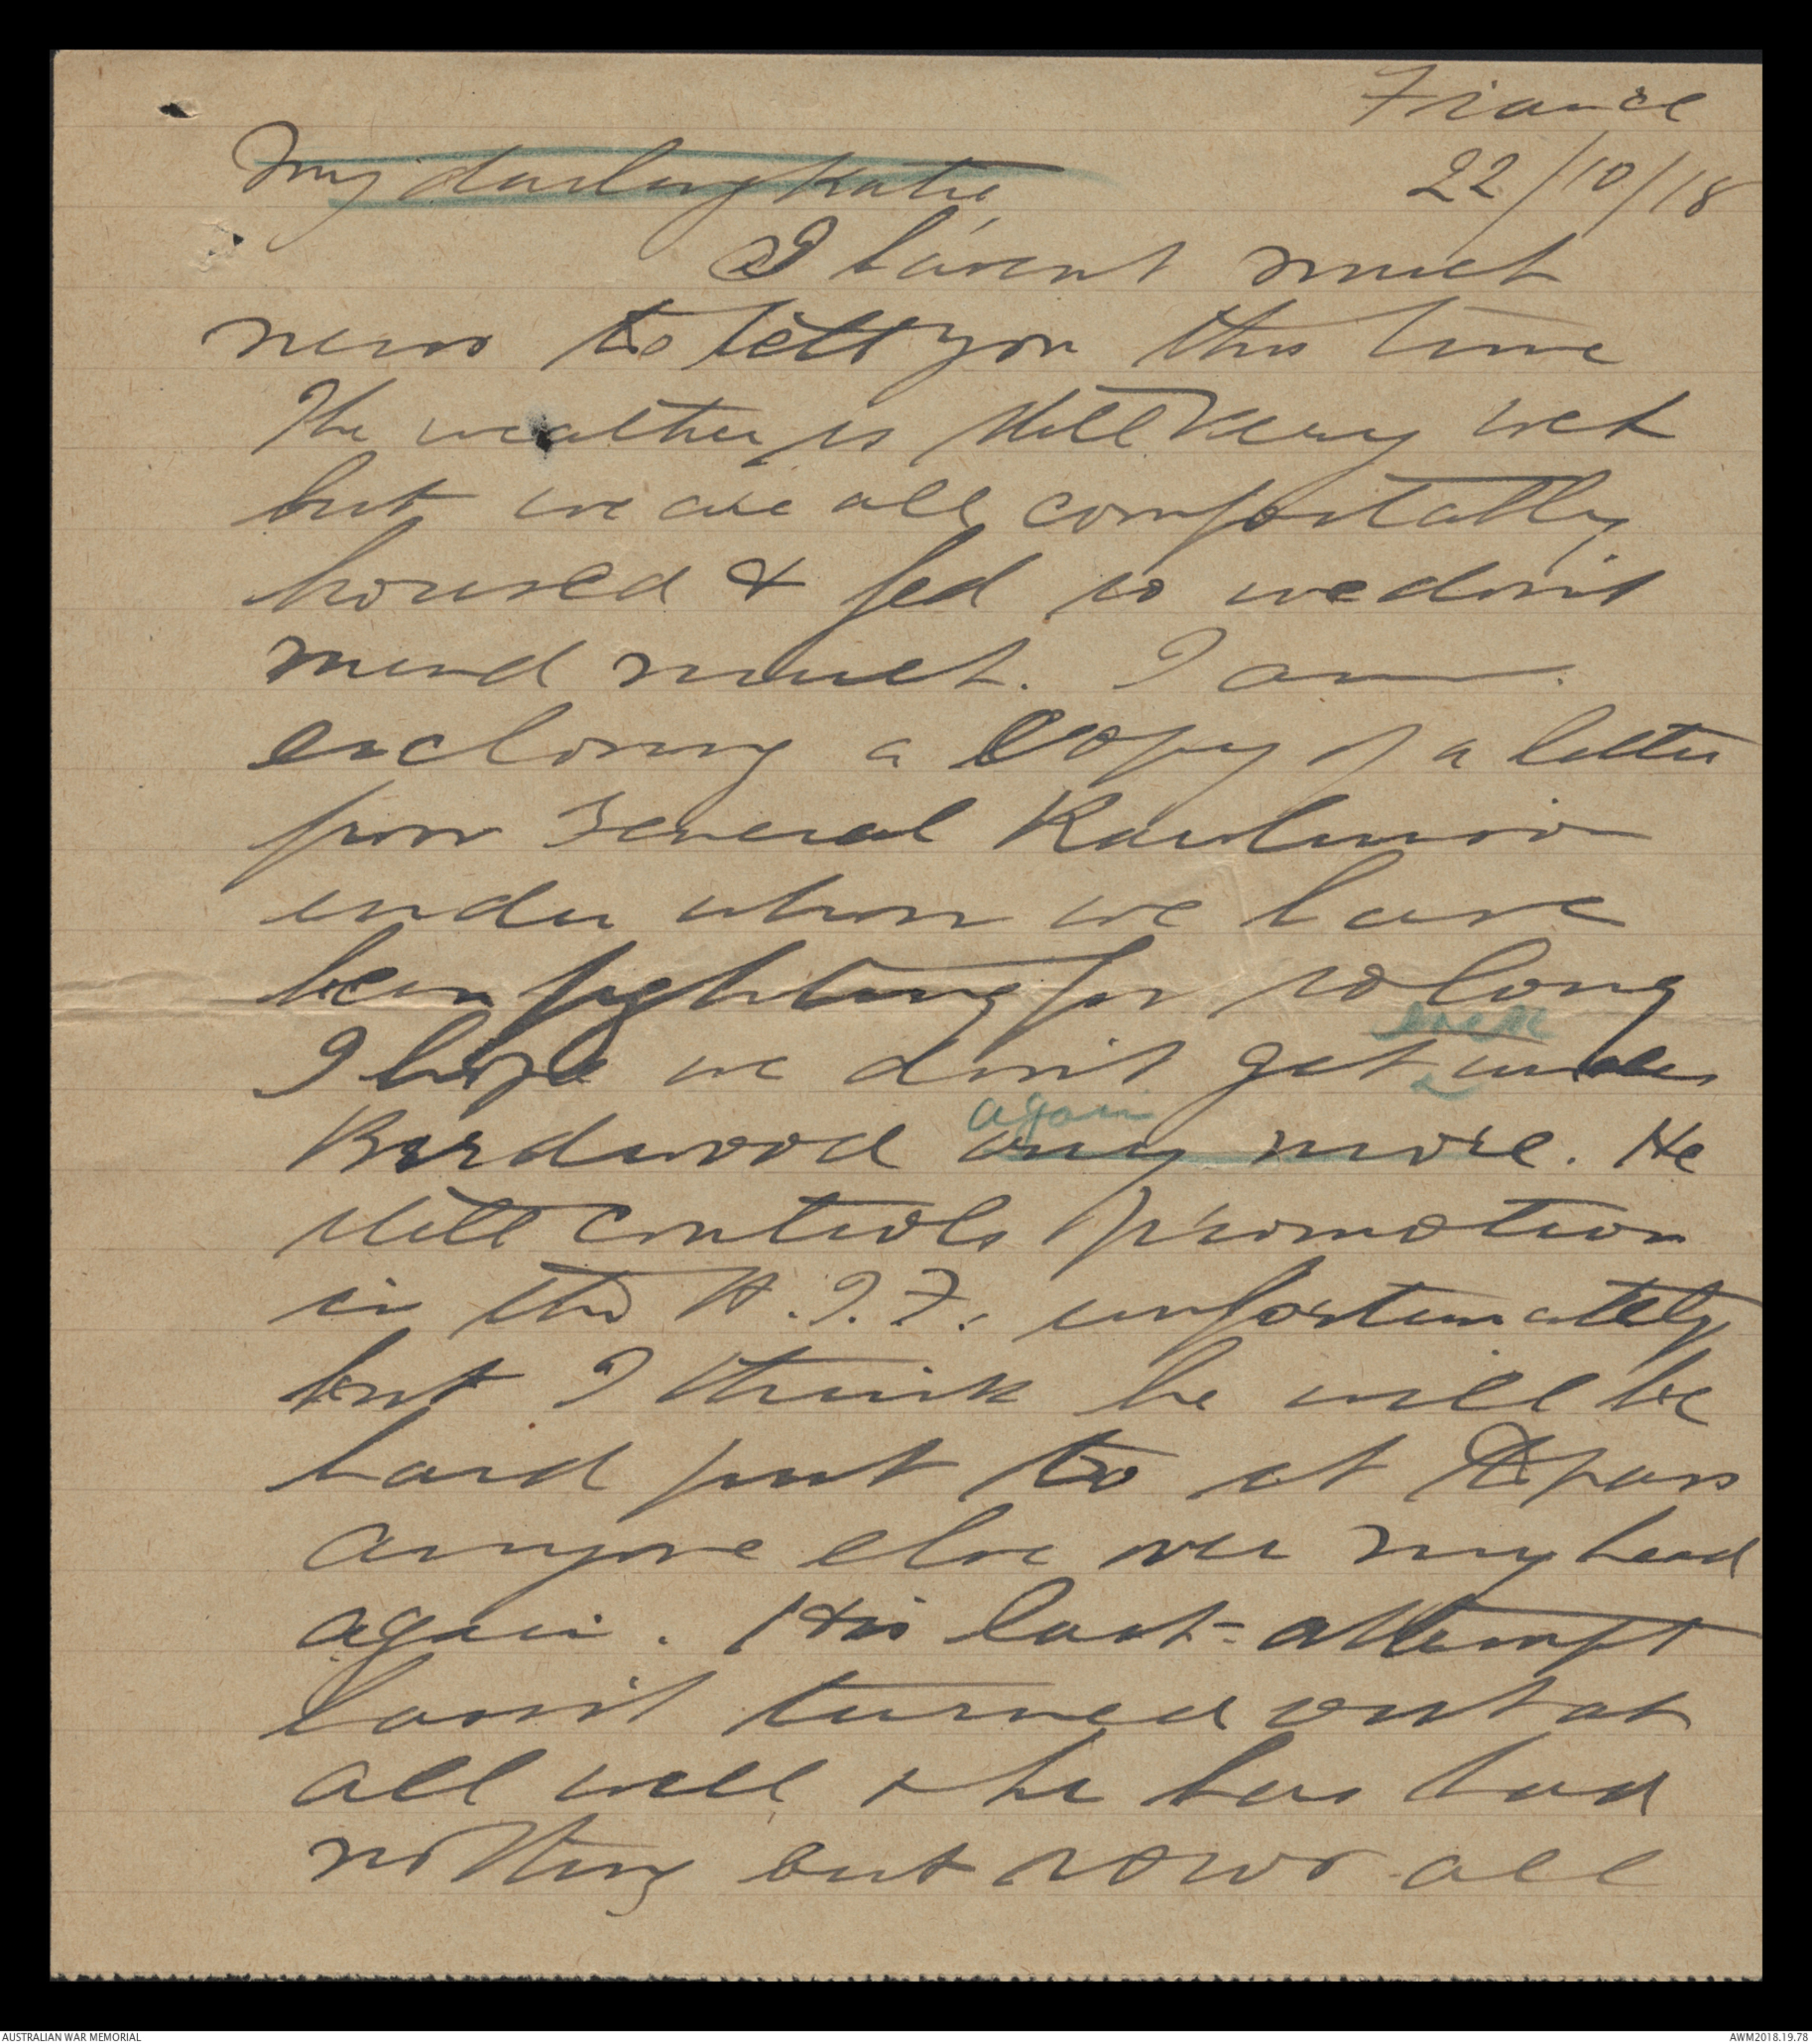 France
22/10/18
My darling Katie,
I haven't much
news to tell you this time
The weather is still very wet
but we are all comfortably
housed & fed so we don't
mind much. I am
enclosing a copy of a letter
from General Rawlinson
under whom we have
been fighting for so long
I hope we don't get ever under
Birdwood again any more. He
still controls promotion
in the A.I.F. unfortunately
but I think he will be
hard put to it to pass
anyone else over my head
again. His last attempt
hasn't turned out at
all well & he has had
nothing but rows all
AUSTRALIAN WAR MEMORIAL
AWM2018.19.78